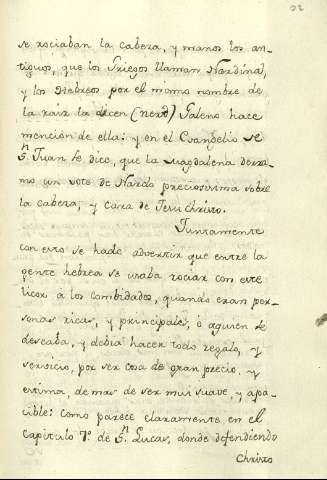 92
se rociaban la cabeza, y manos los an-
tiguos, que los Griegos llaman Nardina,
y los Hebreos por el mismo nombre de
la raiz la dicen (nerd) Galeno hace
mencion de ella: y en el Evangelio de
Sn. Juan se dice, que la Magdalena derra-
mo un vote de Nardo preciosissima sobre
la cabeza, y cara de Jesu Christo.
Juntamente
con esto se ha de advertir que entre la
gente hebrea se usaba rociar con este
licor à los combidados, quando eran per-
sonas ricas, y principales, ò aquien se
deseaba, y debia hacer todo regalo, y
servicio, por ser cosa de gran precio, y
estima, de mas de ser mui suave, y apa-
cible: como parece claramente en el
Capitulo 7º. de Sn. Lucas, donde defendiendo
Christo